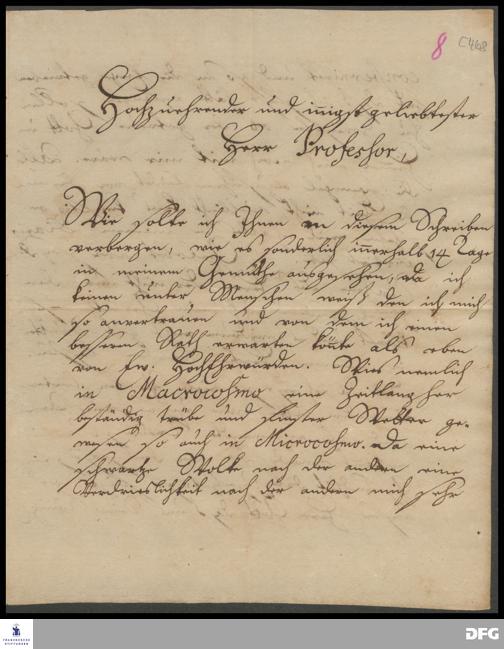 8
C 468
Hochzuehrender und innigstgeliebtester
Herr Professor,
Wie solte ich Ihnen in diesem Schreiben
verbergen, wie es sonderlich innerhalb 14 Tage
in meinem Gemüthe ausgesehen, da ich
keinen unter Menschen weiß den ich mich
so anvertrauen und von dem ich einen
bessern Rath erwarten könte als eben
von Ew. HochEhrwürden. Wies nemlich
in Macrocosmo eine Zeitlang her
beständig trübe und finster Wetter ge-
wesen so auch in Microcosmo. Da eine
schwartze Wolke nach der andern eine
Verdrieslichkeit nach der andern mich sehr
FRANCKESCHE
STIFTUNGEN
DFG